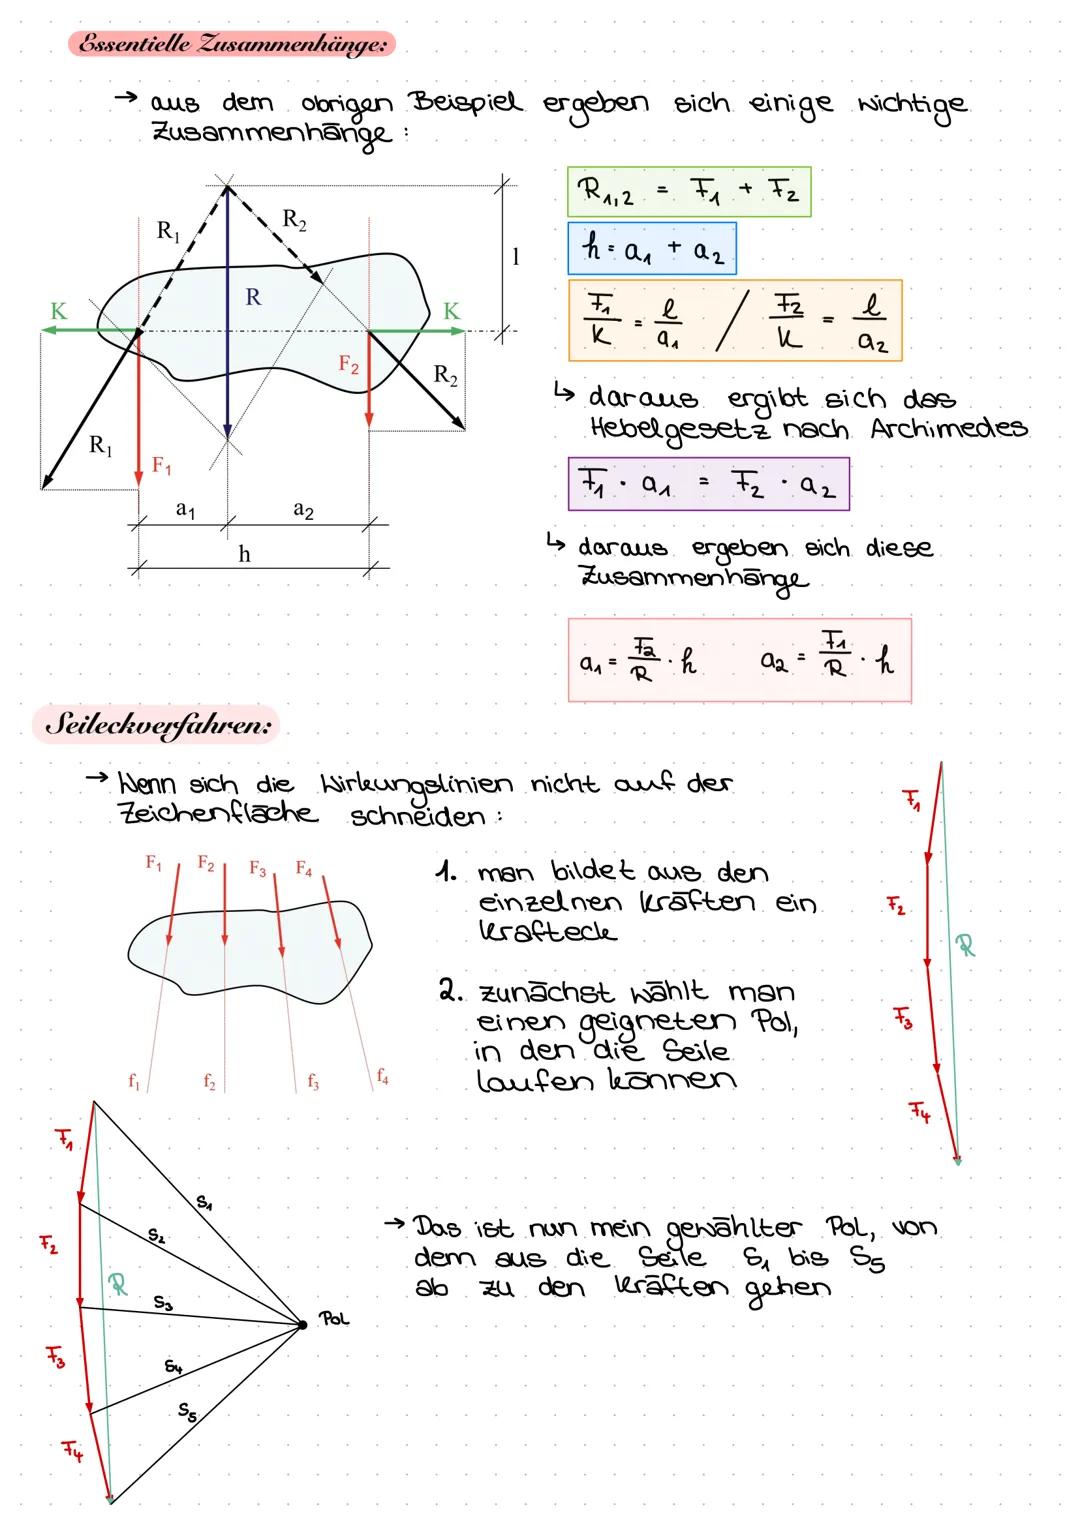 Essentielle Zusammenhänge:
→ aus dem obrigen Beispiel ergeben sich einige wichtige
Zusammenhänge :
R₁
R₂
R
l
K
K
F₂
R₂
R₁
F₁
a₁
a₂
h
R₁,₂ = F₁ + F₂
h = a₁ + a₂
F₁/K = l/a₁ / F₂/K = l/a₂
↳ daraus ergibt sich das
Hebelgesetz nach Archimedes
F₁ · a₁ = F₂ · a₂
↳ daraus ergeben sich diese
Zusammenhänge
a₁ = F₂/R · h a₂ = F₁/R · h
Seileckverfahren:
→ Wenn sich die Wirkungslinien nicht auf der
Zeichenfläche schneiden :
F₁ F₂ F₃ F₄
f₁ f₂ f₃ f₄
1. man bildet aus den
einzelnen Kräften ein
Krafteck
2. zunächst wählt man
einen geigneten Pol,
in den die Seile
laufen können
F₁
F₂
R
F₃
F₄
F₁
S₁
F₂
S₂
R
S₃
Pol
F₃
S₄
S₅
F₄
→ Das ist nun mein gewählter Pol, von
dem aus die Seile S₁ bis S₅
ab zu den Kräften gehen